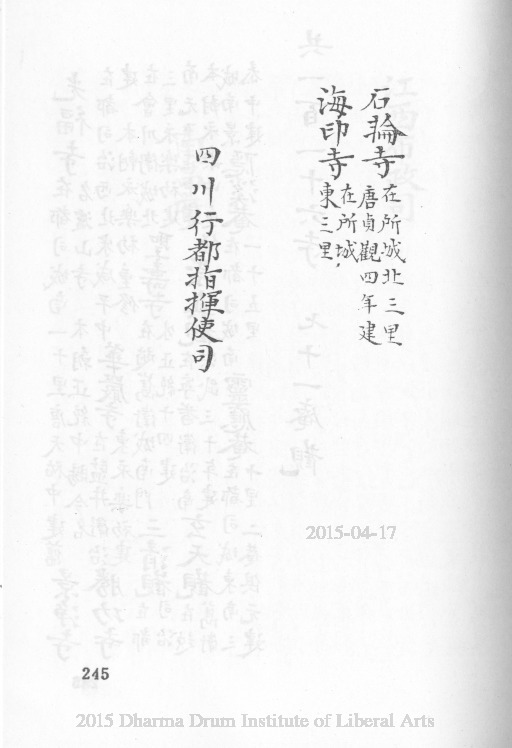 石棆寺 在所城北三里
唐貞觀四年建
海印寺 在所城
東三里
四川行都指揮使司
2015-04-17
245
2015 Dharma Drum Institute of Liberal Arts